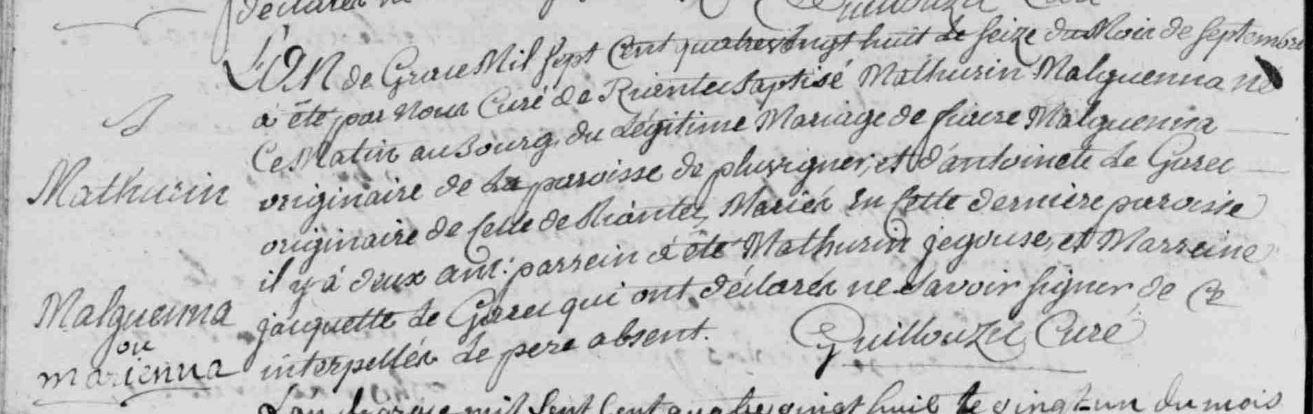 déclaré ne
Guillouzu Curé
L'An de Grace Mil Sept Cent quatrevingt huit le seize du Mois de septembre
a été par Nous Curé de Riantec baptisé Mathurin Malguenna né
Ce Matin au bourg, du Légitime Mariage de Malguenna
Mathurin
originaire de La paroisse de pluvigner, et d'antoinete Le Garec
originaire de Celle de Riantec, Mariés en cette dernière paroisse
il y a deux ans: parrein a été Mathurin jegouse, et Marreine
jacquette Le Garec qui ont déclarés ne savoir signer de ce
Malguenna
ou
marienna
interpellés Le pere absent. Guillouzu Curé
L'an de grace mil sept Cent quatre vingt huit le vingt un du mois